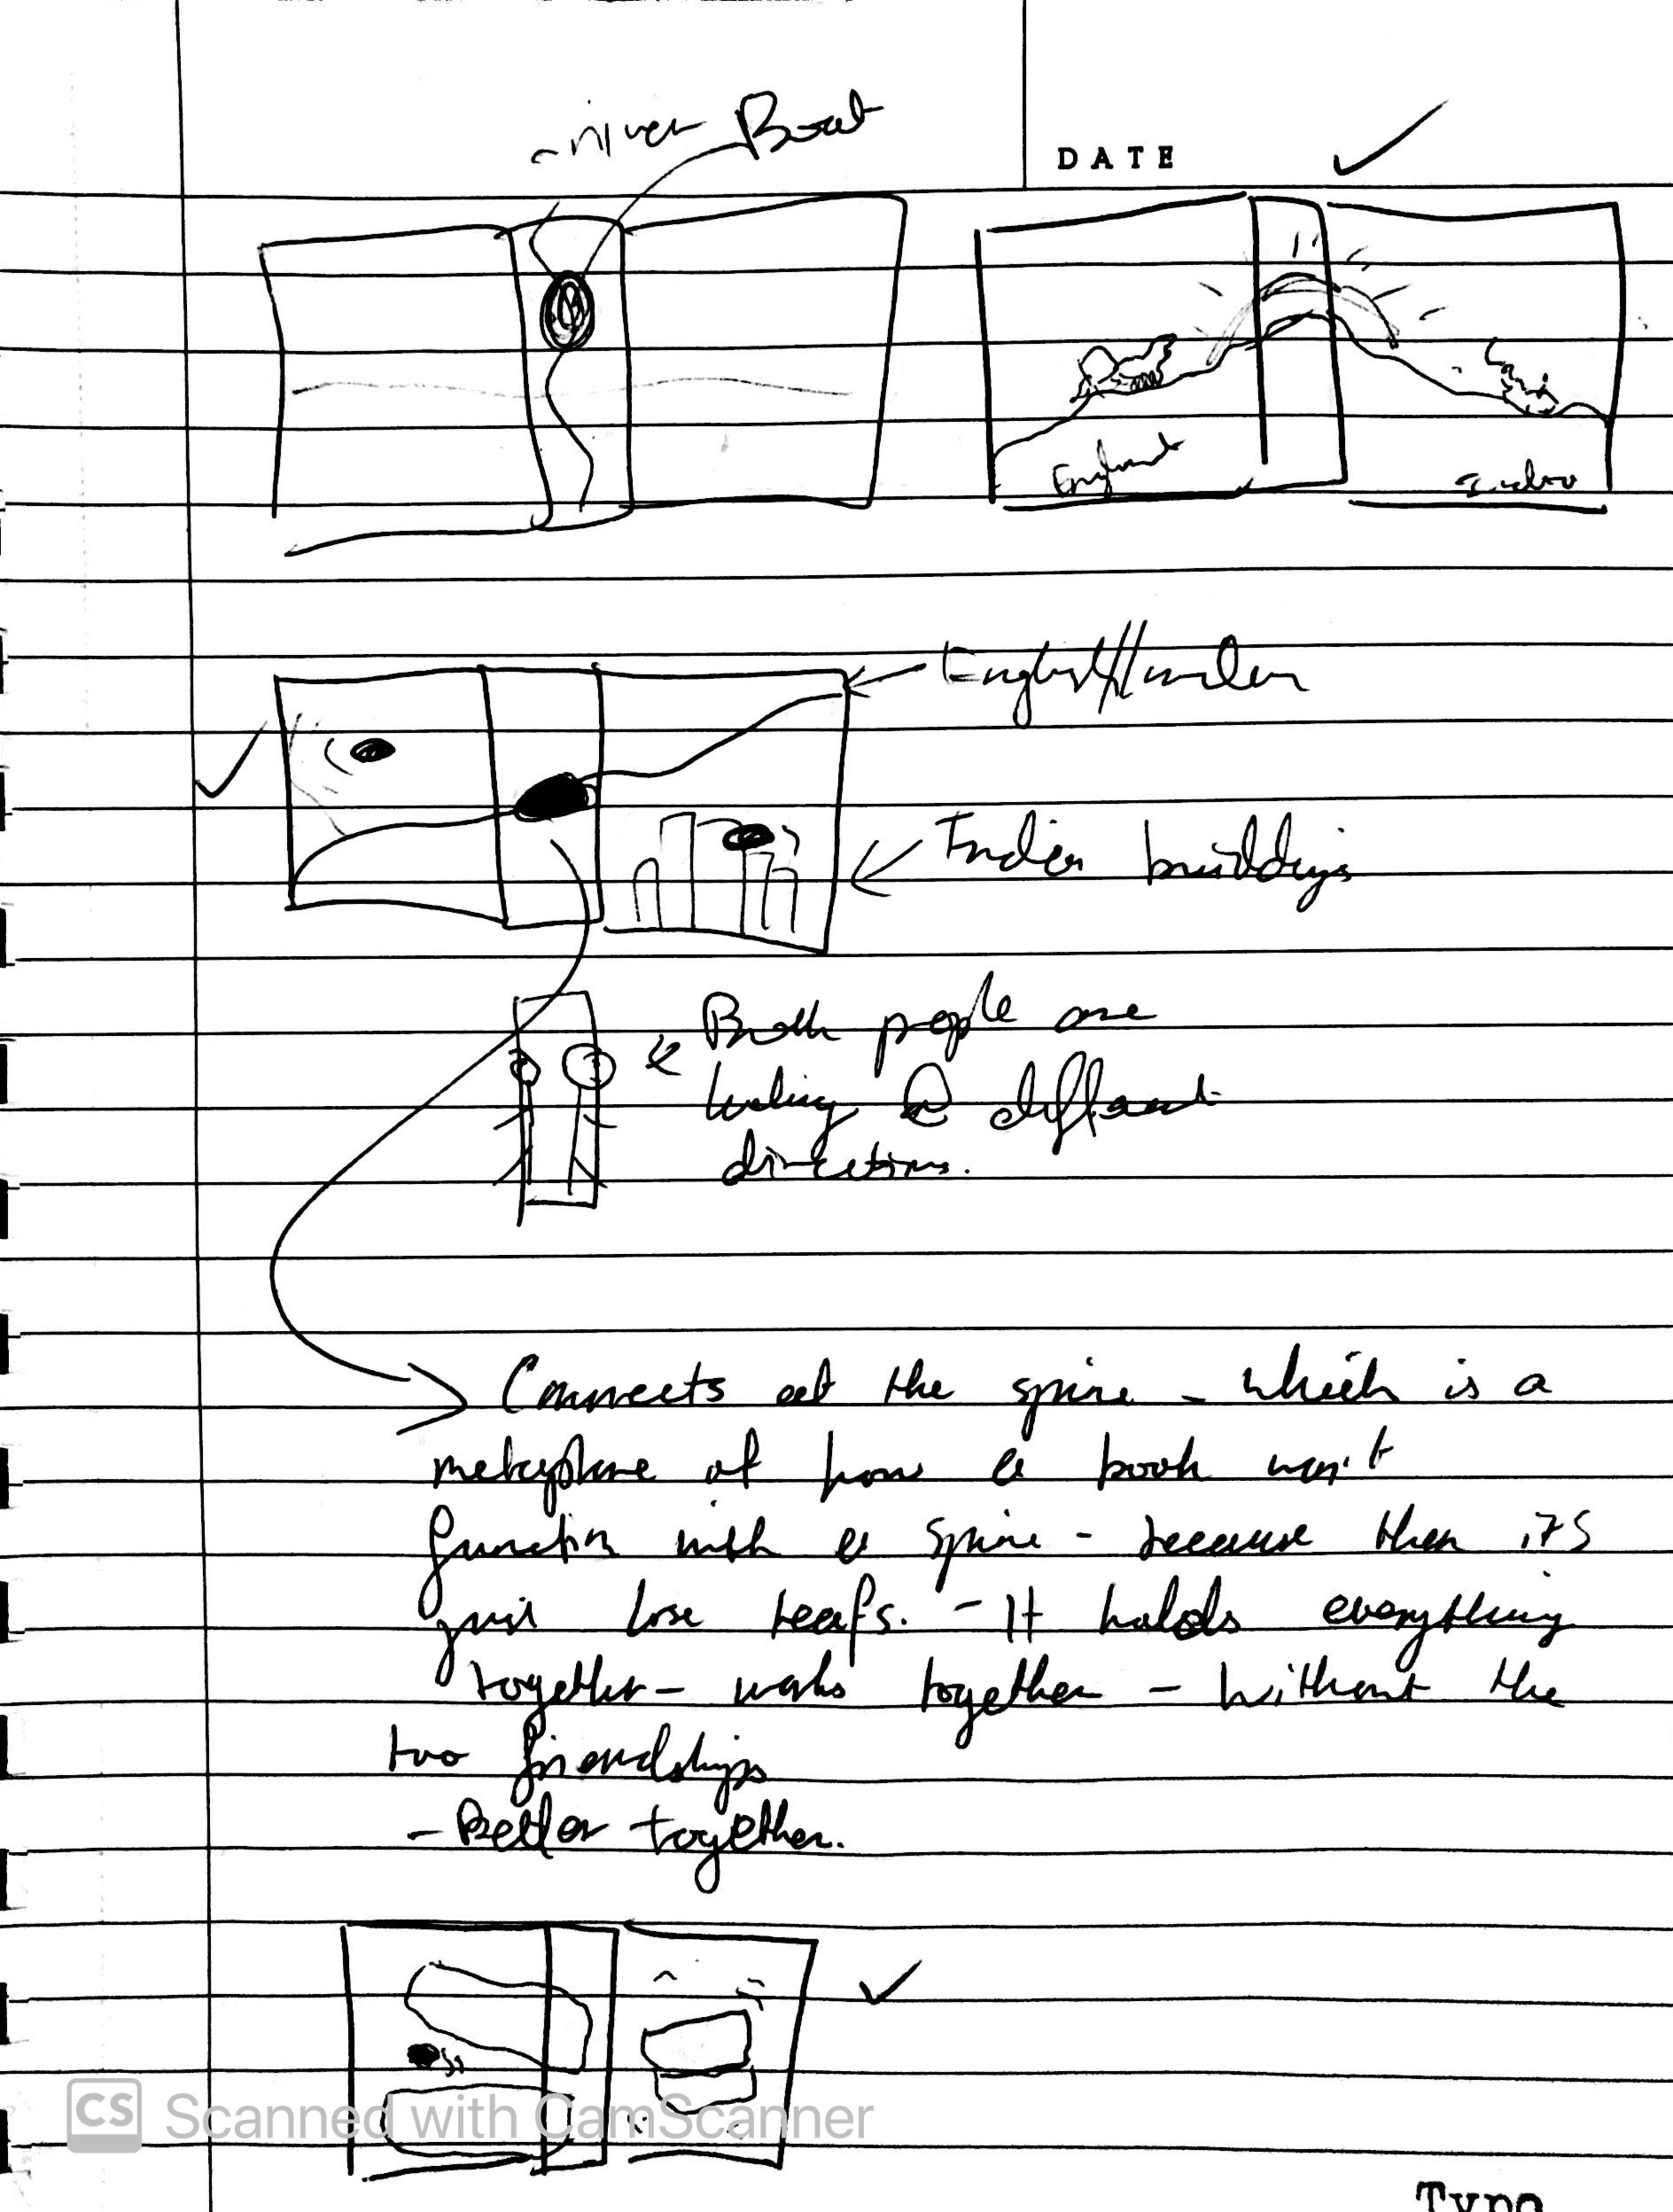 river Boat
DATE
England
India
English/London
Indian buildings
Both people are
looking @ different
directions.
Connects at the spine - which is a
metaphore of how a book won't
function with a spine - because then its
just lose leafs. - It holds everything
together - works together - without the
two friendships
- Better together.
CS Scanned with CamScanner
Typo